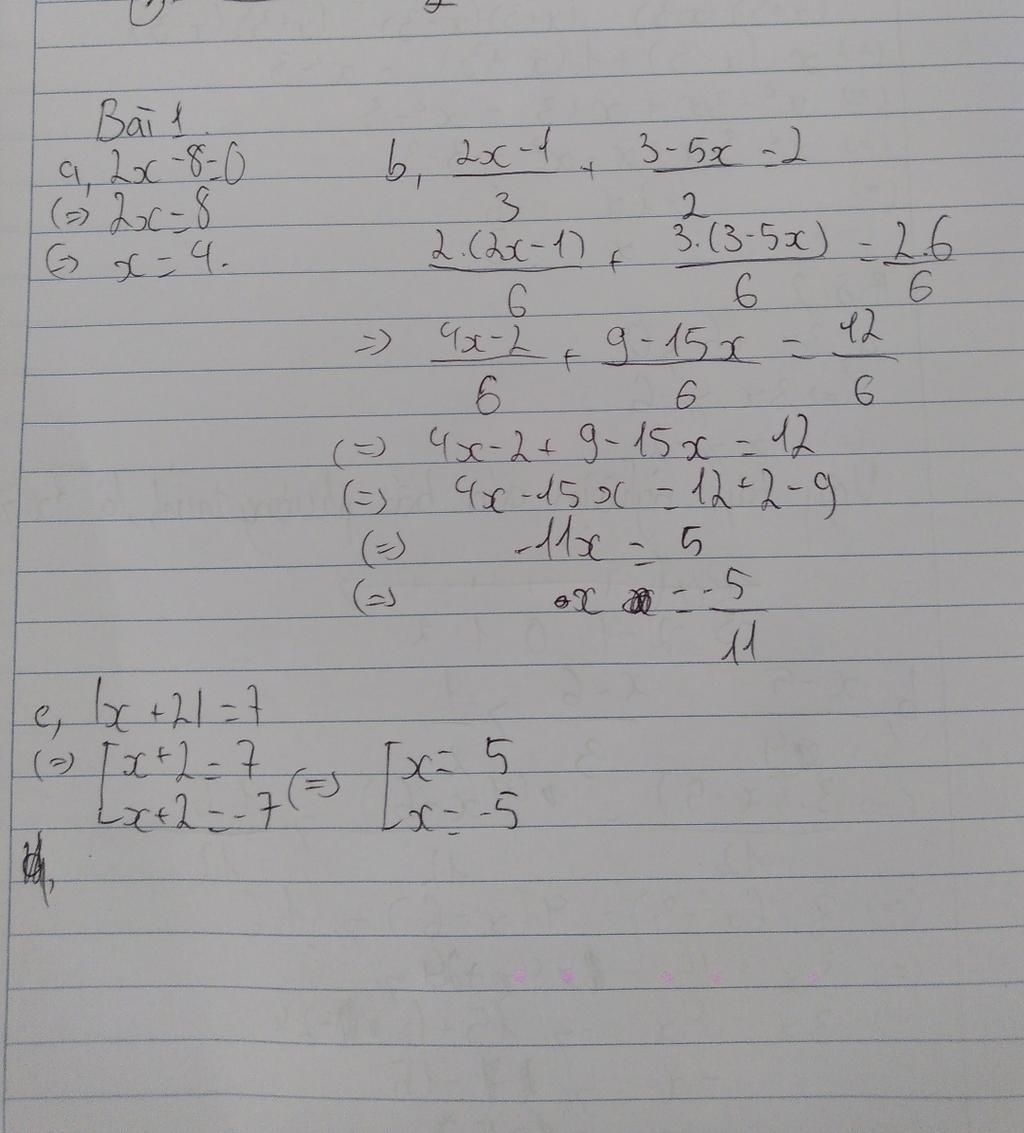 Bài 1.
a, 2x - 8 = 0
(=) 2x = 8
(=) x = 4.
b, (2x - 1)/3 + (3 - 5x)/2 = 2
2.(2x - 1)/6 + 3.(3 - 5x)/6 = 2.6/6
=) (4x - 2)/6 + (9 - 15x)/6 = 12/6
(=) 4x - 2 + 9 - 15x = 12
(=) 4x - 15x = 12 + 2 - 9
(=) -11x = 5
(=) x = -5/11
c, |x + 2| = 7
(=) [x + 2 = 7 (=) [x = 5
[x + 2 = -7 [x = -5